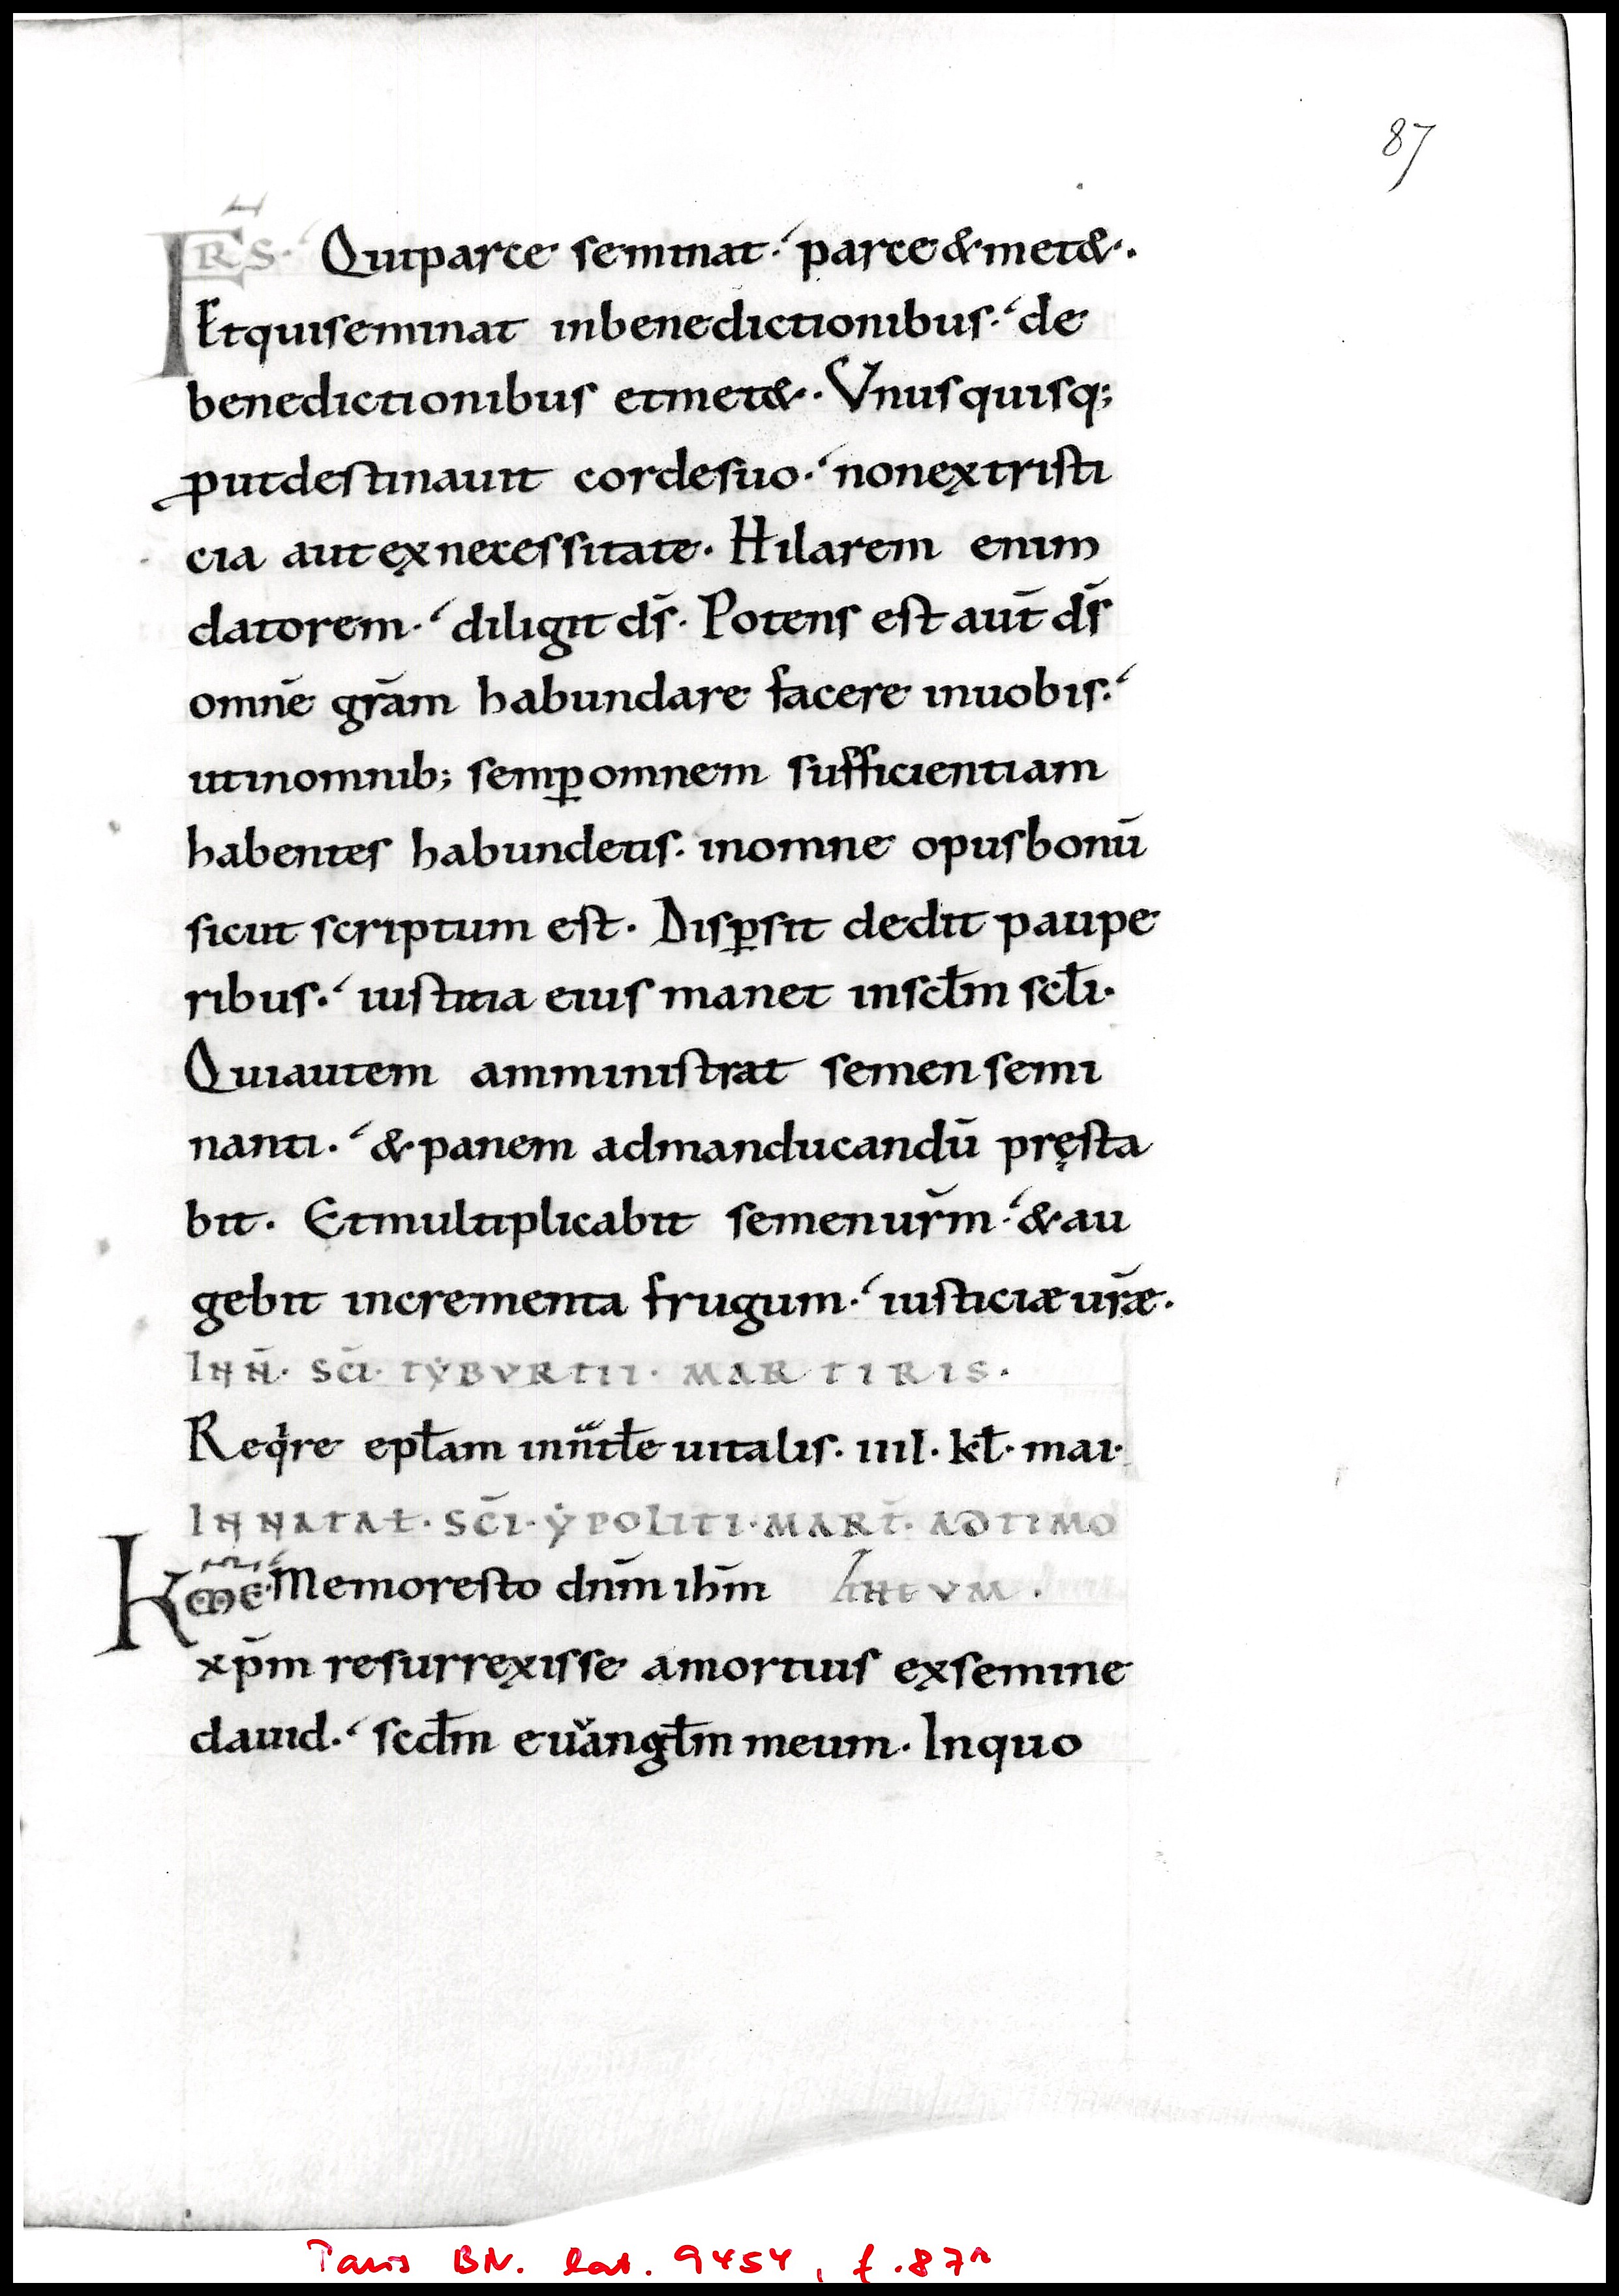 87
FRS· Qui parce seminat·' parce & met&·
Et qui seminat in benedictionibus·' de
benedictionibus et met&· Vnusquisq;
ꝓut destinauit corde suo·' non ex tristi
cia aut ex necessitate· Hilarem enim
datorem·' diligit dс̄· Potens est aut̄ ds̄
omnē grām habundare facere in uobis·'
ut in omnib; semꝑ omnem sufficientiam
habentes habundetis· in omne opus bonū
sicut scriptum est· Disꝑsit dedit paupe
ribus·' iustitia eius manet in scłm scłi·
Qui autem amministrat semen semi
nanti·' & panem ad manducandū pręsta
bit· Et multiplicabit semen ur̄m·' & au
gebit incrementa frugum·' iusticiæ ur̄æ·
INN̄· SC̄I· TẎBVRTII· MARTIRIS·
Reqͥre epłam in nt̄łe uitalis· IIII· kł· mai·
IN NATAŁ· SC̄I· ẎPOLITI· MART̄· AD TIMO
KME· Memor esto dn̄m ih̄m THEVM·
xp̄m resurrexisse a mortuis ex semine
dauid·' scđm euangłm meum· In quo
Paris BN. lat. 9454, f. 87r